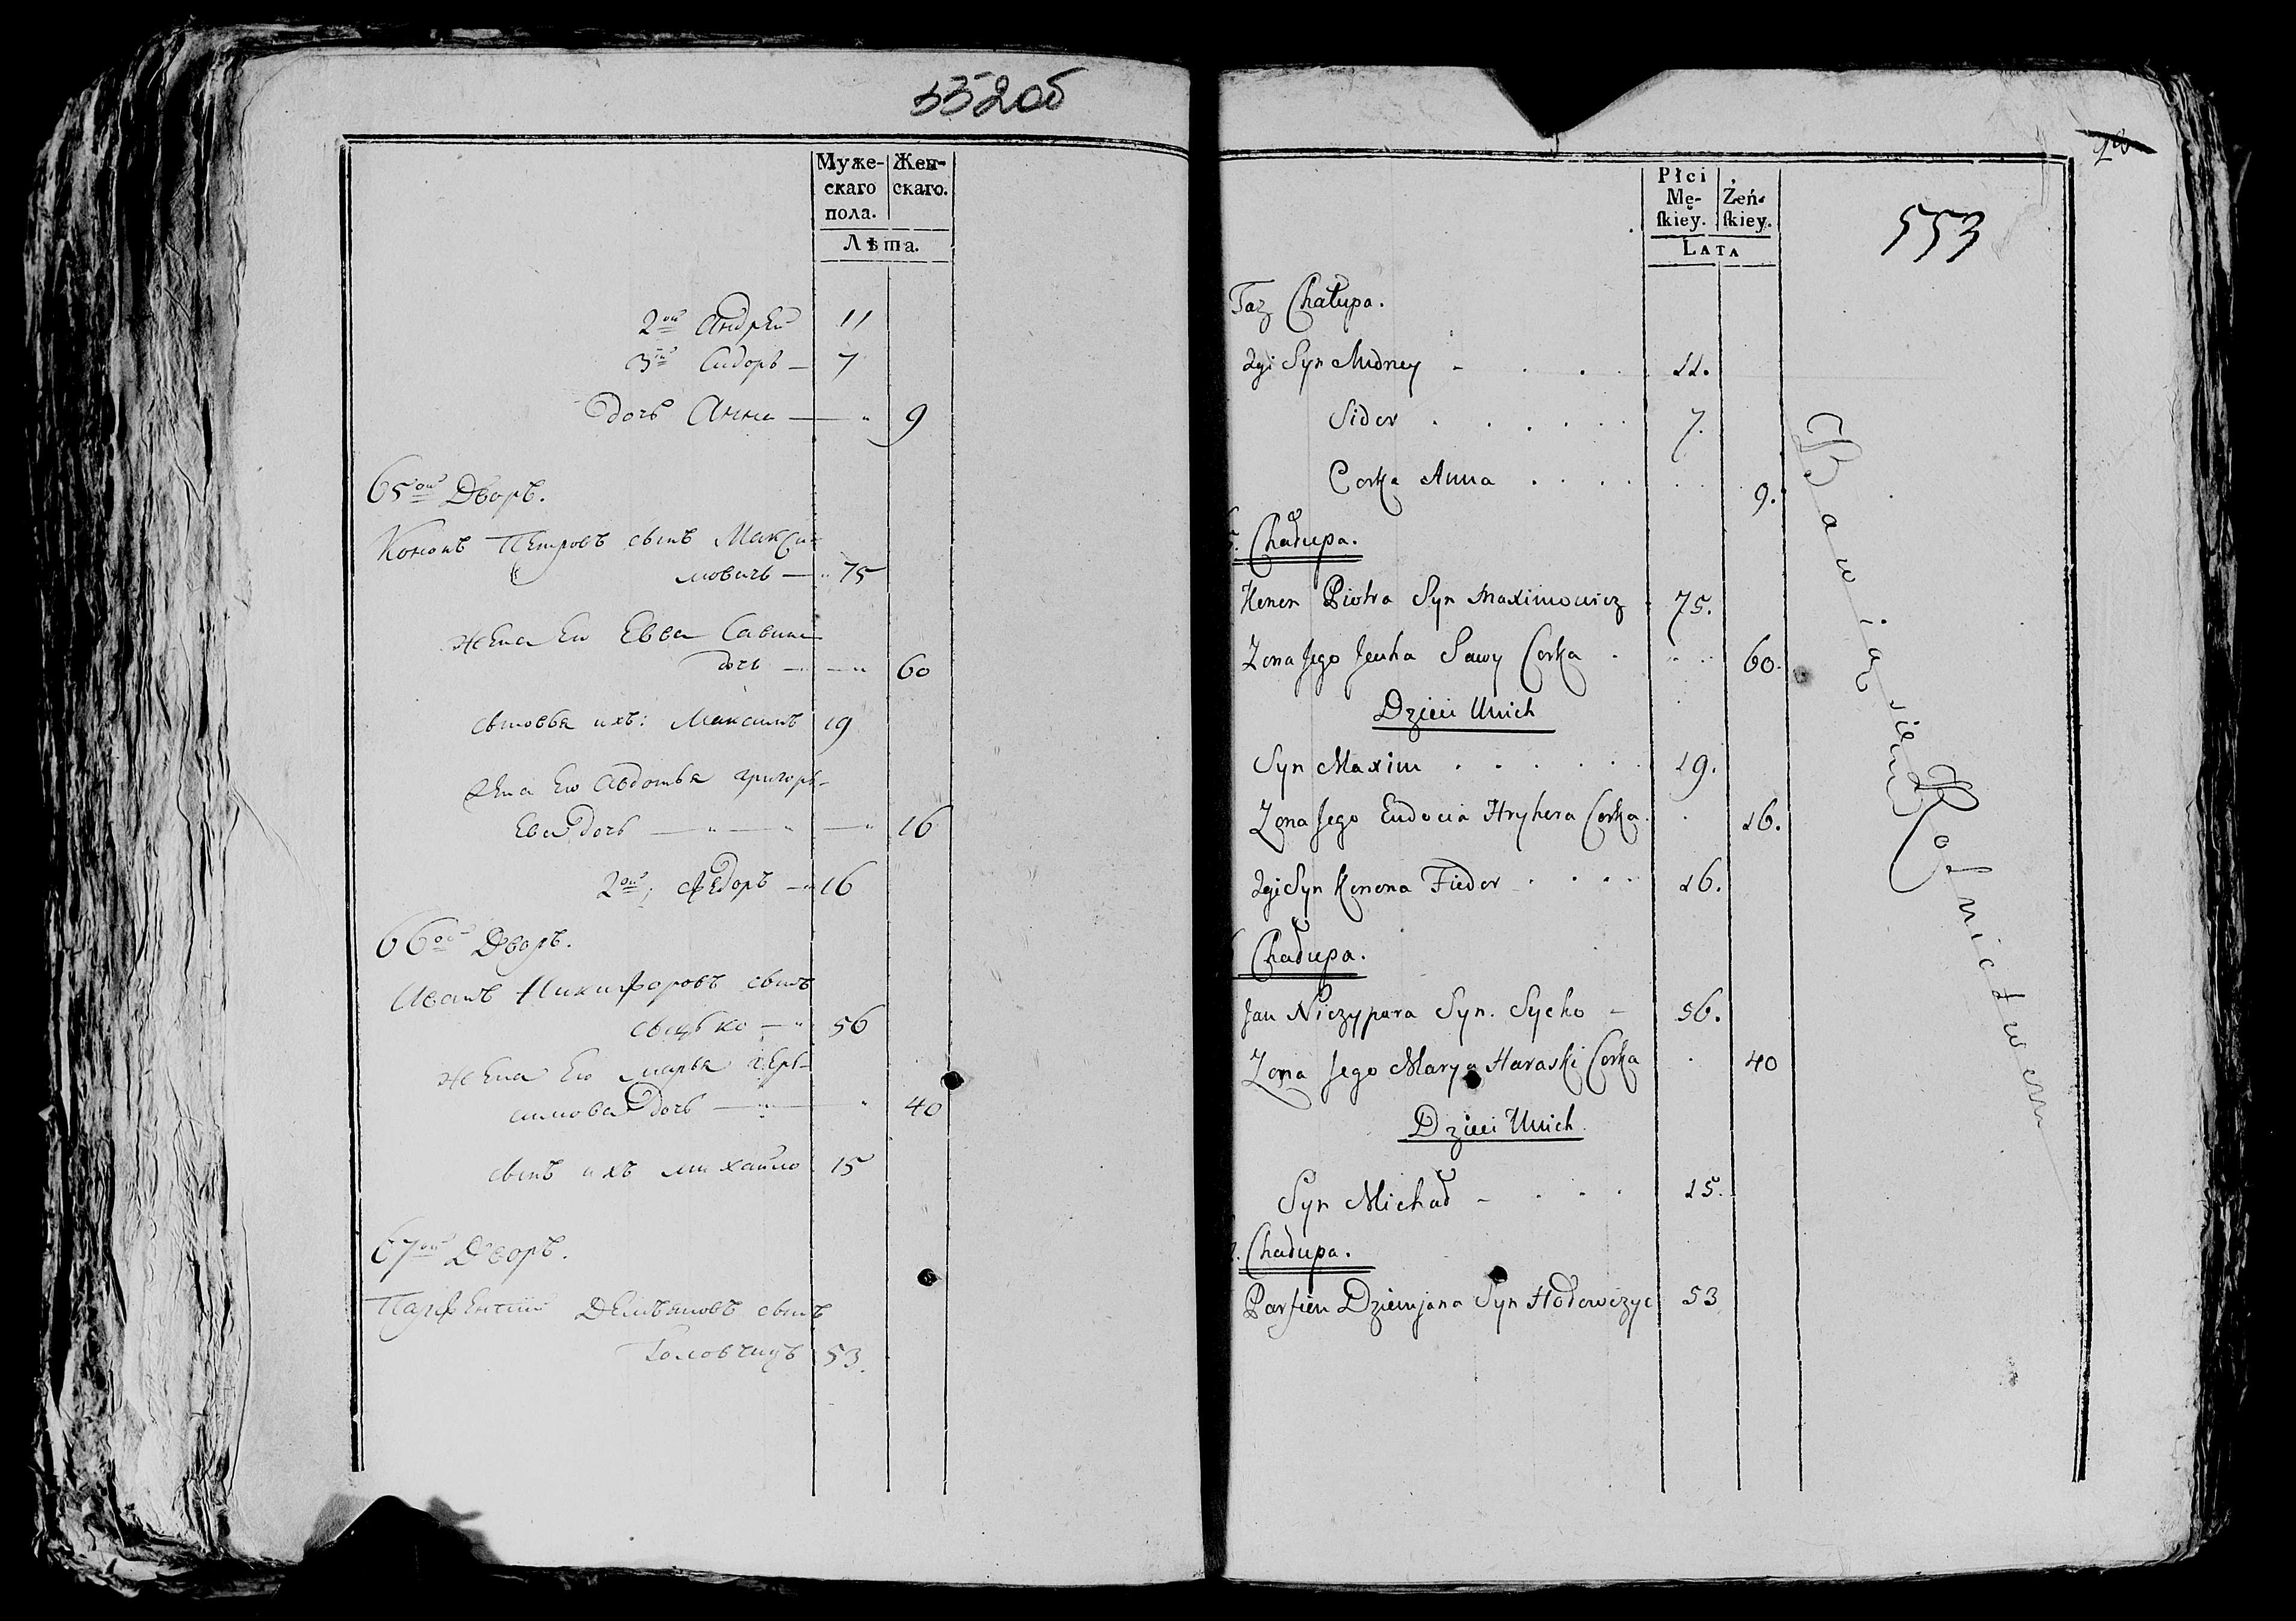 552об
Муже- Жен-
скаго скаго.
пола.
Лѣта.
2ой Андрей 11
3ій Сидоръ — 7
дочь Анна — " 9
65ой Дворъ.
Кононъ Петровъ сынъ Макси=
мовичь — " 75
жена Ево Евва Савина
дочь — — " 60
сыновья ихъ: Максимъ 19
жена Ево Авдотья григорь-
Ева дочь — " — " — " 16
2ой; Федоръ — " 16
66ой Дворъ.
Иванъ Никифоровъ сынъ
сыцько — " 56
жена Ево марья гера-
симова дочь — " — " 40
сынъ ихъ михайло 15
67ой Дворъ.
Парфентий Демьяновъ сынъ
Головчицъ 53.
20
Płci
Mę- Żeń-
ſkiey. ſkiey.
LATA
553
Taz Chałupa.
2gi Syn Andrey - . . . 11.
Sidor . . . . . . 7.
Corka Anna . . . . . . 9.
5. Chałupa.
Konon Piotra Syn Maximowicz 75.
Zona Jego Jewha Sawy Corka . 60.
Dzieci Unich
Syn Maxim . . . . . . 19.
Zona Jego Eudocia Hryhora Corka . . 16.
2gi Syn Konona Fiedor . . . . 16.
6 Chałupa.
Jan Niczypara Syn. Sycho - 56.
Zona Jego Marya Haraski Corka . 40
Dzieci Unich.
Syn Michał - . . . 15.
7. Chałupa.
Parfien Dziemjana Syn Hołowczyc 53
Bawiąsię Rolnictwem